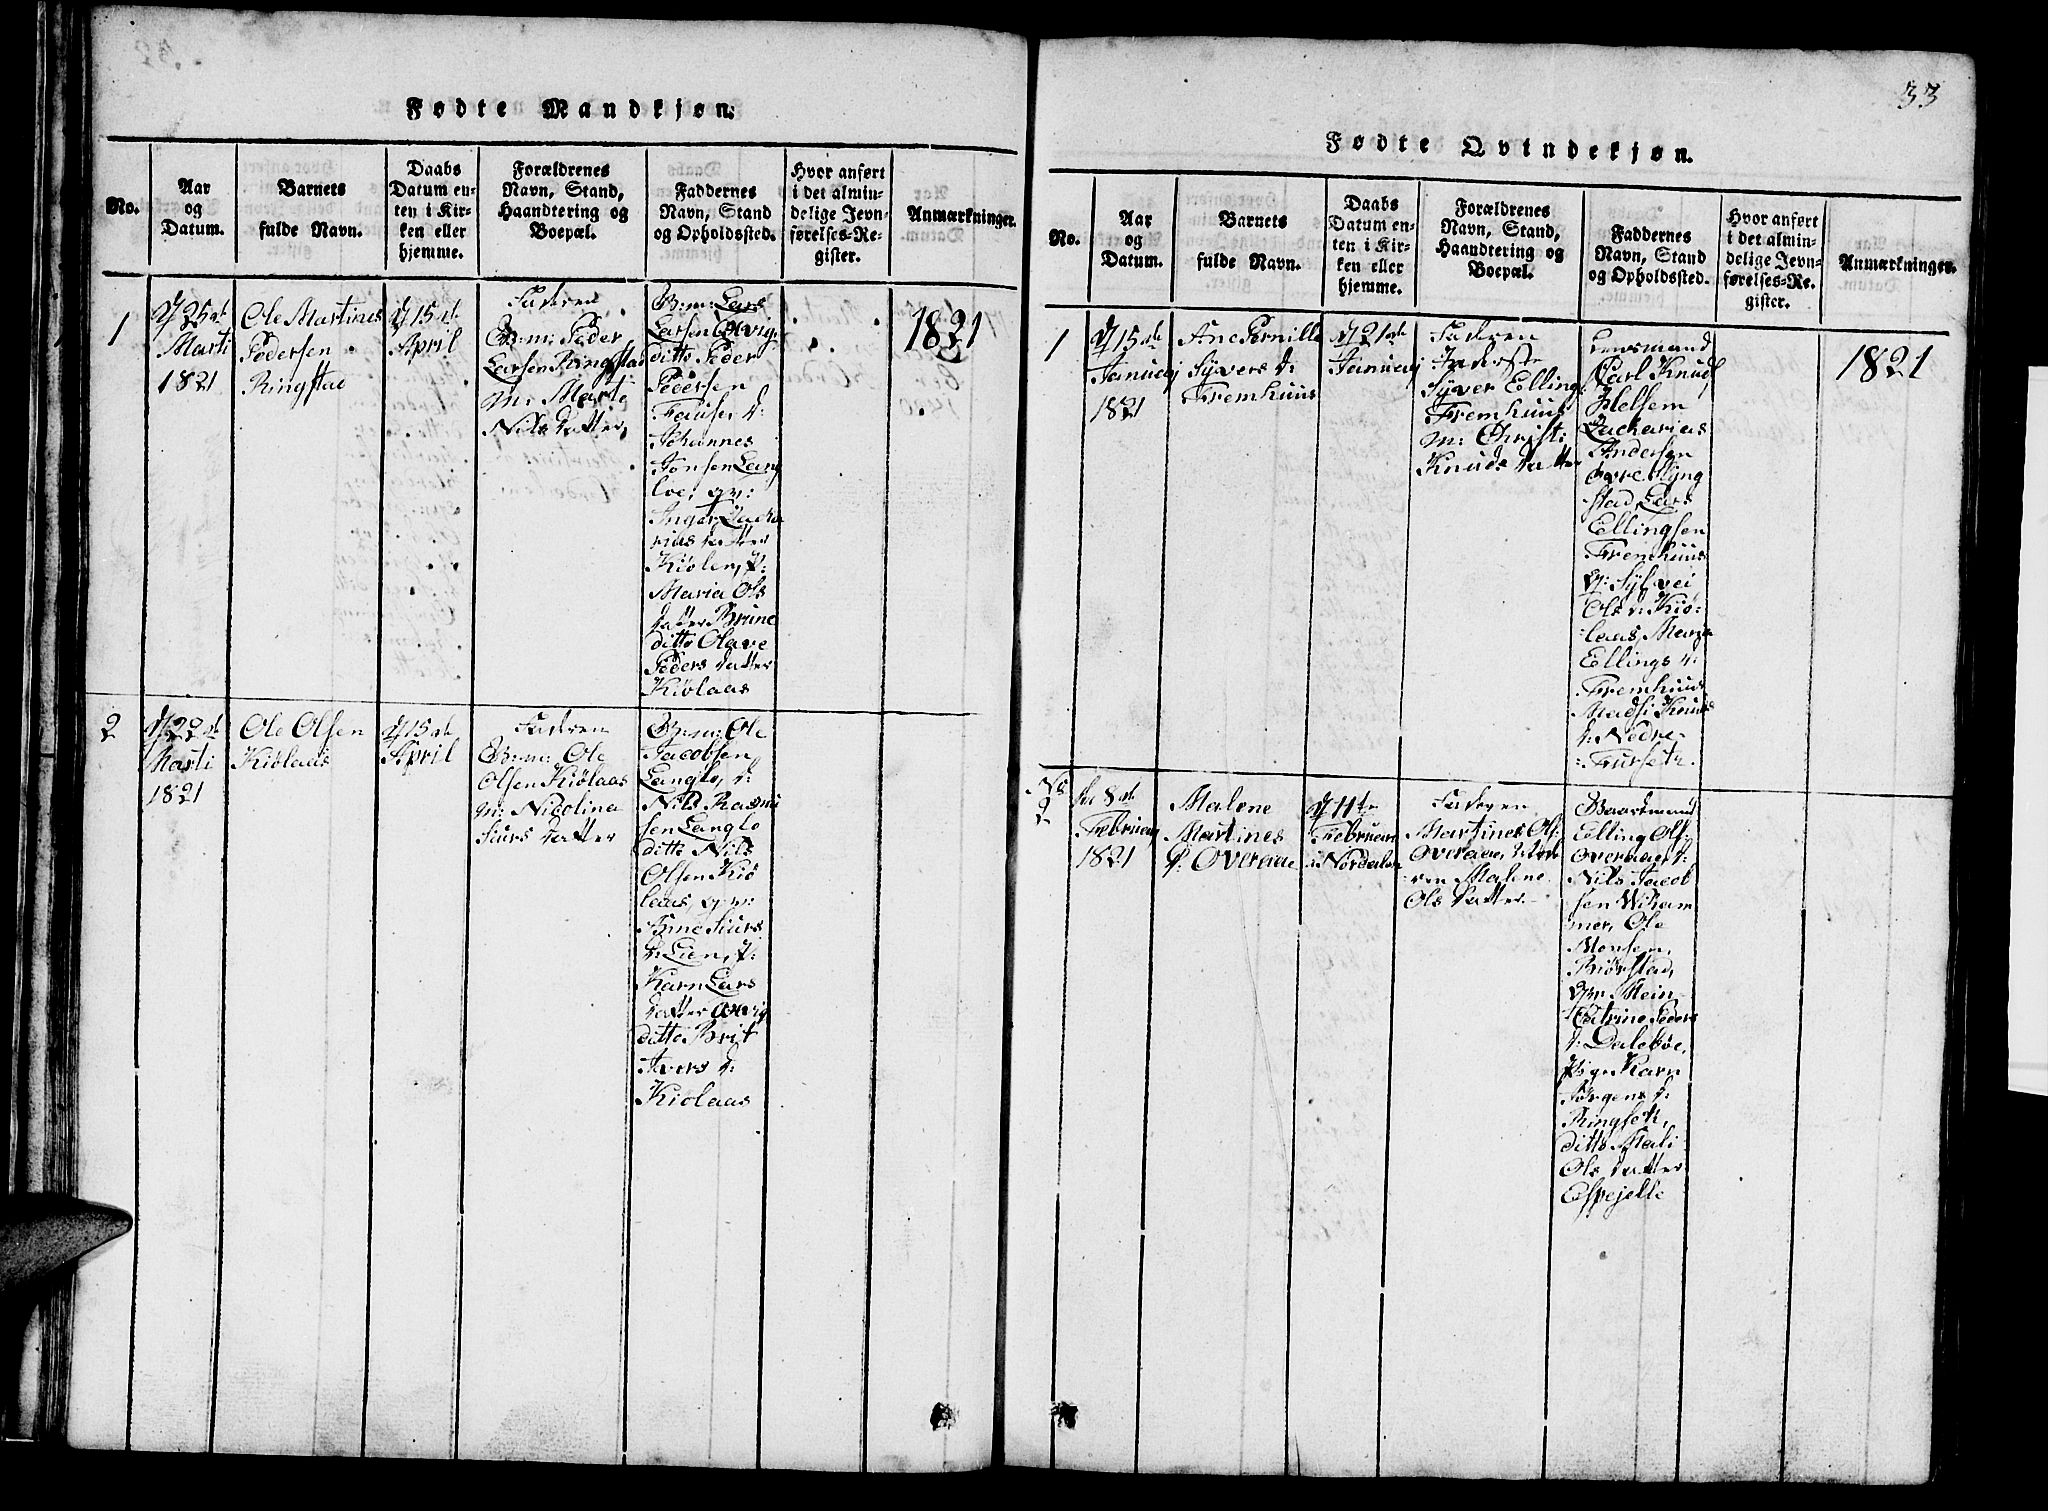 Fødte Mandkjøn.
No.
Aar
og
Datum.
Barnets
fulde Navn.
Daabs
Datum en-
ten i Kir-
ken eller
hjemme.
Forældrenes
Navn, Stand,
Haandtering og
Boepæl.
Faddernes
Navn, Stand
og Opholdssted.
Hvor anført
i det almin-
delige Jevn-
førelses-Re-
gister.
Anmærkninger.
1
25de
Marti
1821
Ole Martines
Pedersen
Ringstad
15de
April
Faderen
B:m: Peder
Larsen Ringstad
M: Marte
Nils datter,
B:m: Lars
Larsen Ølvig
ditto Peder
Pedersen
Johannes
Jonsen Lang
loe, qv:
Inger Zacha
rias datter
Kiølen, P:
Maria Ols
datter Brune
ditto Olave
Peders datter
Kiølaas
1821
2
22de
Marti
1821
Ole Olsen
Kiølaas
15de
April
Faderen
B:m: Ole
Olsen Kiølaas
M: Nicolina
Siurs datter
B:m: Ole
Jacobsen
Langlo, d:
Nils Rasmu
sen Langlo
ditto Nils
Olsen Kiø
laas, qv:
Anne Siurs
d: Lien, P:
Karn Lars
datter Ølvig
ditto Brit
Ivers d:
Kiølaas
33
Fødte Qvindekjøn.
No.
Aar
og
Datum.
Barnets
fulde Navn.
Daabs
Datum en-
ten i Kir-
ken eller
hjemme.
Forældrenes
Navn, Stand,
Haandtering og
Boepæl.
Faddernes
Navn, Stand
og Opholdssted.
Hvor anført
i det almin-
delige Jevn-
førelses-Re-
gister.
Anmærkninger.
1
15de
Januarj
1821
Ane Pernille
Syvers d:
Fremhuus
21de
Januarj
Faderen
Inderste
Syver Elling
Fremhuus
M: Christi
Knuds datter
Lensmand
Carl Knud
Helsem
Zacharias
Andersen
Øvre Ryng
stad, Lars
Ellingsen
Fremhuus
q: Sylvei
Ols d: Kiø-
laas, Maria
Ellings d:
Fremhuus
Madsi Knuds
d: Nedre
Furset.
1821
No
2
8de
Februarj
1821
Malene
Martines
d: Overaae
11te
Februari
i Nordalen
Faderen
Martines Ols:
Overaae, Mode
ren Malene
Ols datter
Baardmand
Elling Ols:
Overaae, d:
Nils Jacob
sen Wikham
mer, Ole
Monsen,
Biørstad,
Mein
Catrine Peders
d: Dalsbøe,
Pige Karn
Jørgens d:
Ringset,
ditto Mali
Ols datter
Espejelle